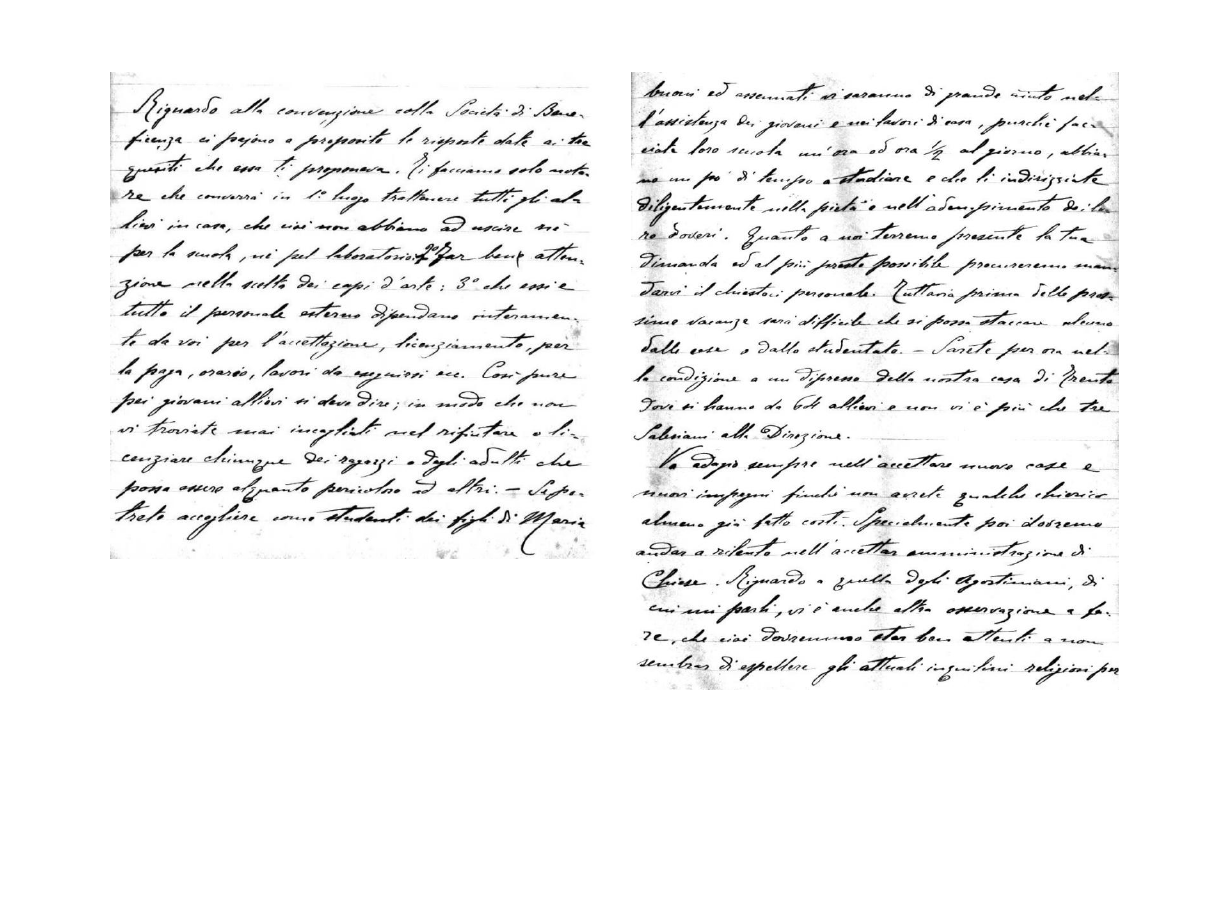 Riguardo alla convenzione colla Società di Bene-
ficenza ci pajono a proposito le risposte date ai tre
quesiti che essa ti proponeva. Ti facciamo solo nota-
re che converrà in 1° luogo trattenere tutti gli al-
lievi in casa, che cioè non abbiano ad uscire nè
per la scuola, nè pel laboratorio; 2° far bene atten-
zione nella scelta dei capi d'arte; 3° che essi e
tutto il personale esterno dipendano interamen-
te da voi per l'accettazione, licenziamento, per
la paga, orario, lavori da eseguirsi ecc. Così pure
pei giovani allievi si deve dire; in modo che non
vi troviate mai incagliati nel rifiutare o li-
cenziare chiunque dei ragazzi o degli adulti che
possa essere alquanto pericoloso ad altri. — Se po-
trete accogliere come studenti dei figli di Maria
buoni ed assennati vi saranno di grande aiuto nel-
l'assistenza dei giovani e nei lavori di casa, purchè fac-
ciate loro scuola un'ora od ora ½ al giorno, abbia-
no un po' di tempo a studiare e che li indirizziate
diligentemente nella pietà e nell'adempimento dei lo-
ro doveri. Quanto a noi terremo presente la tua
dimanda ed al più presto possibile procureremo man-
darvi il chiestoci personale. Tuttavia prima delle pros-
sime vacanze sarà difficile che si possa staccare alcuno
dalle case o dallo studentato. — Sarete per ora nel-
la condizione a un dipresso della nostra casa di Trento
dove si hanno da 60 allievi e non vi è più che tre
Salesiani alla Direzione.
Va adagio sempre nell'accettare nuove case e
nuovi impegni finchè non avrete qualche chierico
almeno già fatto costì. Specialmente poi dovremo
andar a rilento nell'accettar amministrazione di
Chiese. Riguardo a quella degli Agostiniani, di
cui mi parli, vi è anche altra osservazione a fa-
re, che cioè dovremmo star ben attenti a non
sembrar di espellere gli attuali inquilini religiosi per